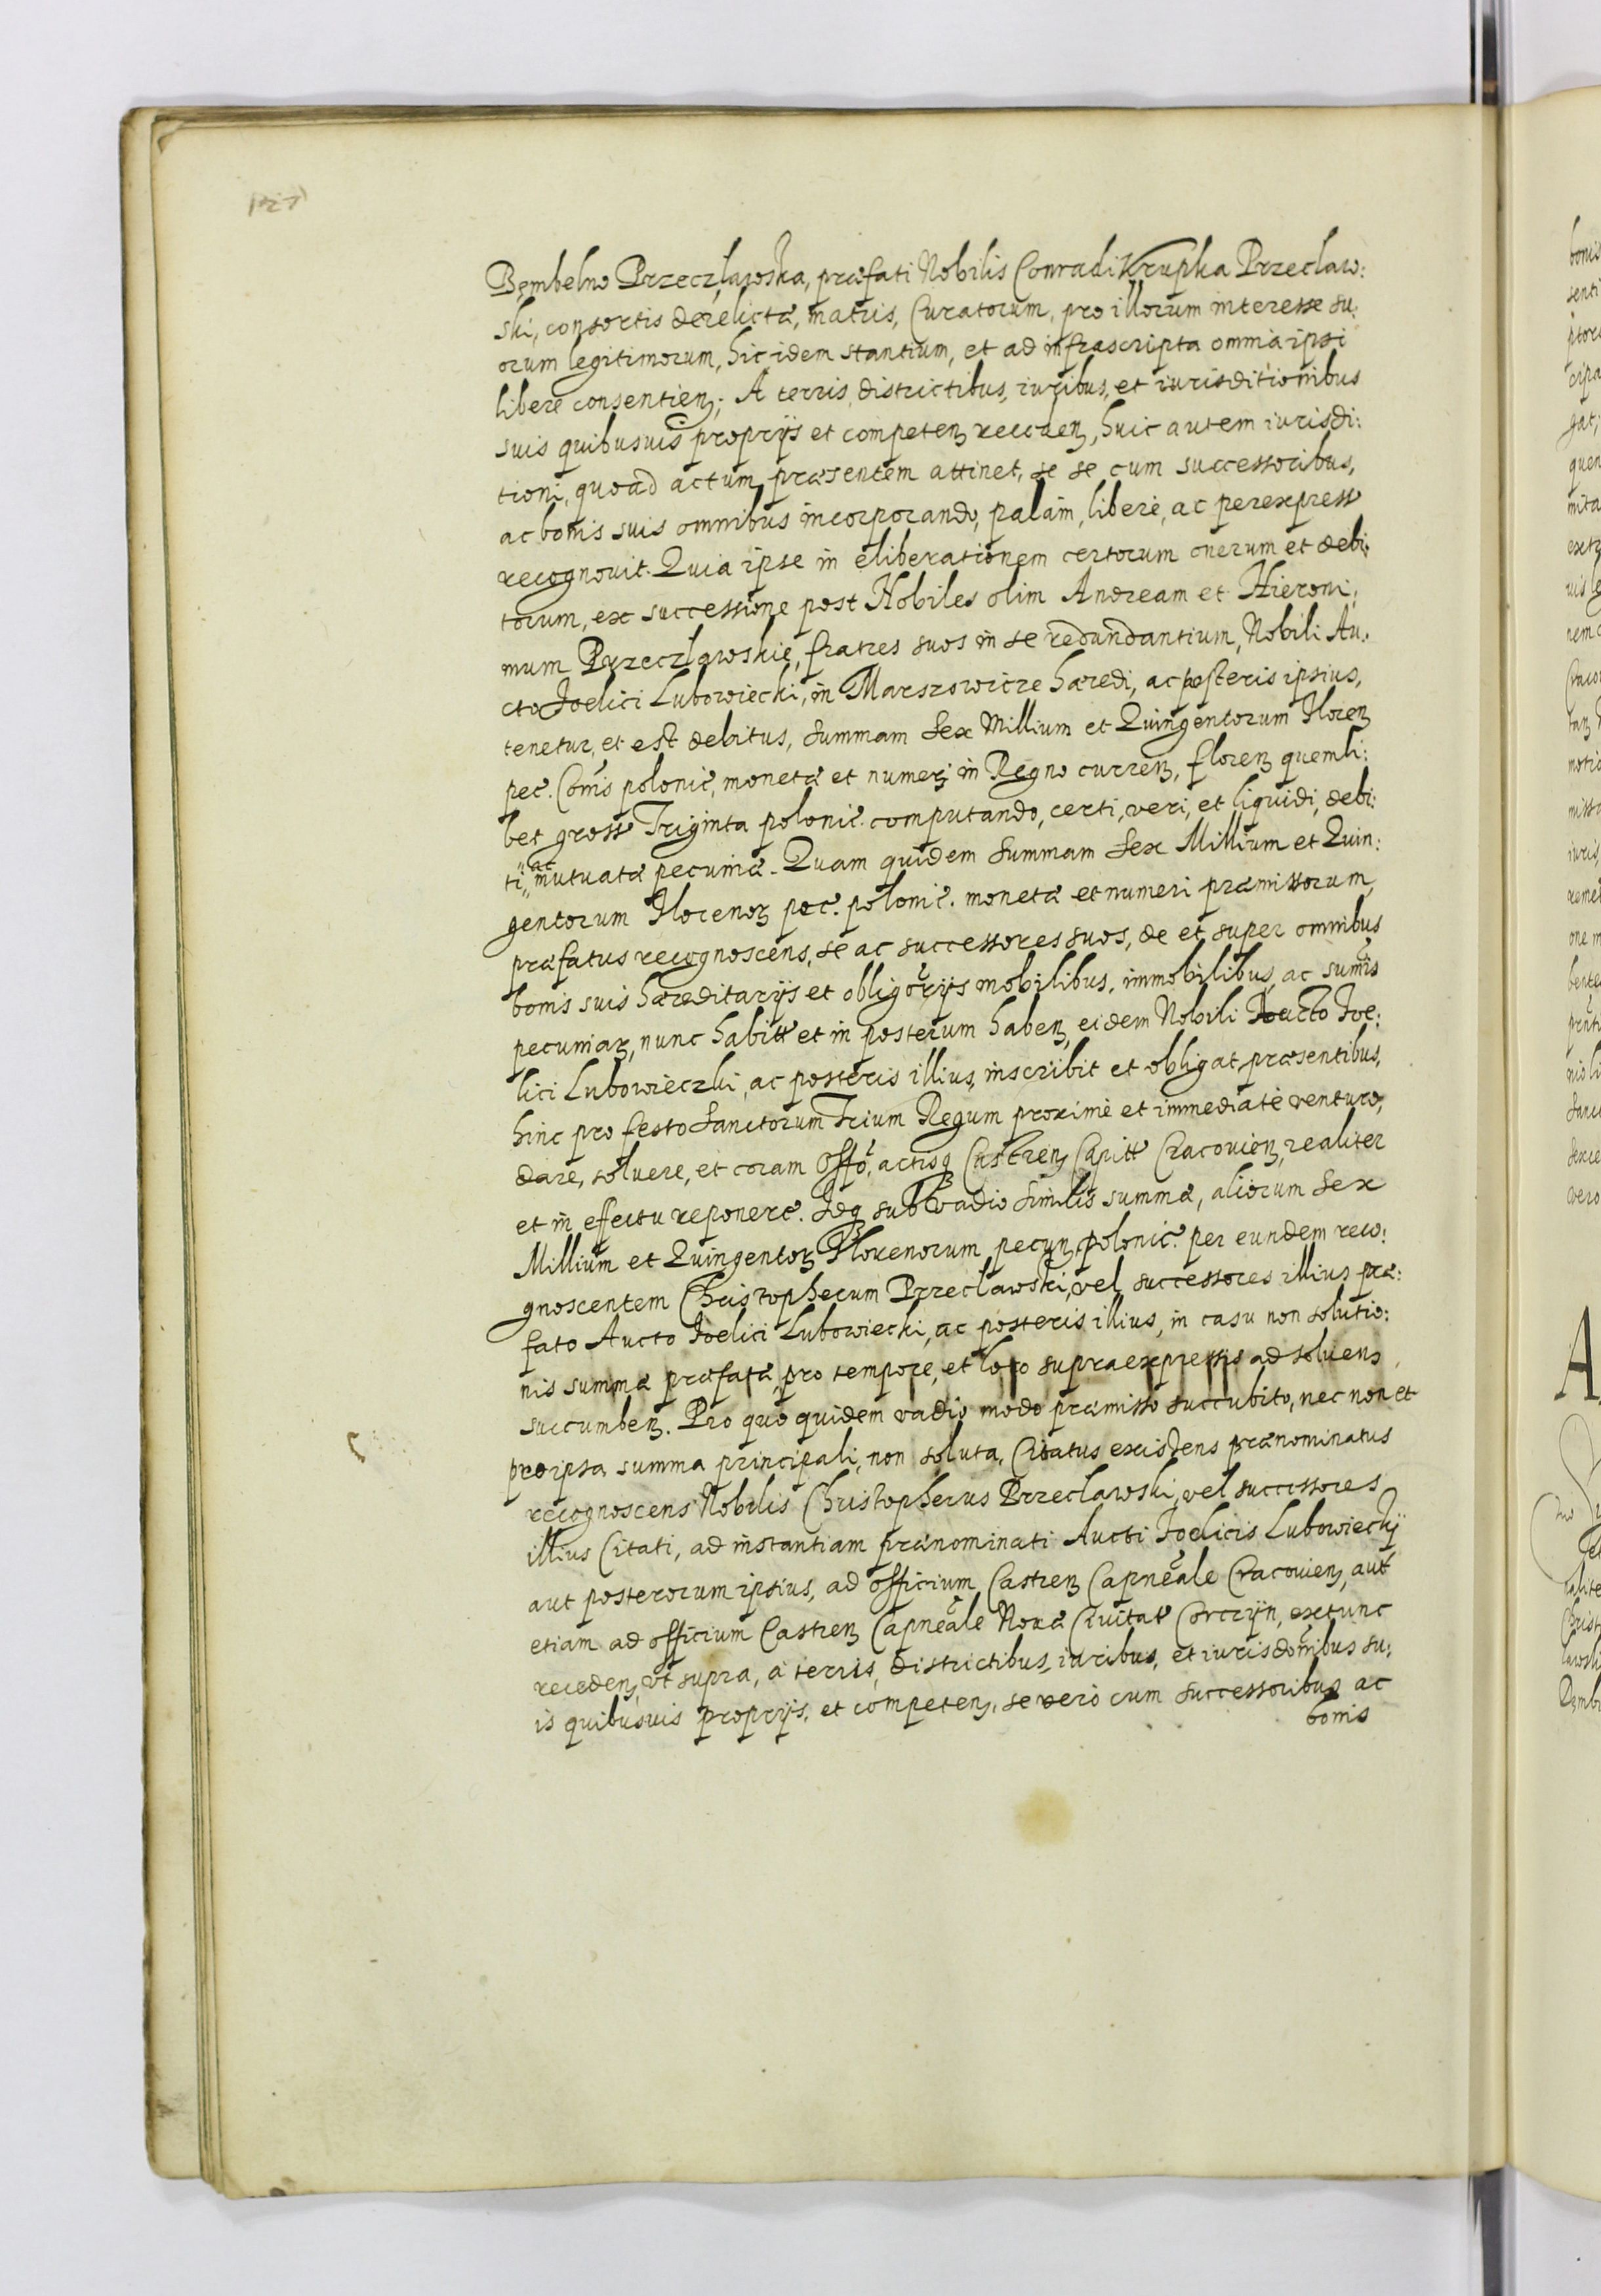 Bembelno Przeczławska, præfati Nobilis Conradi Krupka Przecław:
ski, consortis derelictæ, matris, Curatorum, pro illorum interesse su:
orum legitimorum, hic idem stantium, et ad infrascripta omnia ipsi
libere consentien; A terris, districtibus, iuribus, et iurisditionibus
suis quibusuis proprijs et competen receden, huic autem iurisdi:
tioni, quoad actum præsentem attinet, se se cum successoribus,
ac bonis suis omnibus incorporando, palam, liberè, ac perexpresse
recognouit. Quia ipse in eliberationem certorum onerum et debi:
torum, ex successione post Nobiles olim Andream et Hieroni:
mum Przeczławskie, fratres suos in se redundantium, Nobili Au:
cto Foelici Lubowiecki, in Marszowicze hæredi, ac posteris ipsius,
tenetur, et est debitus, summam Sex Millium et Quingentorum Floren
pec. Cois polonic, monetæ et numeri in Regno curren, floren quemli:
bet gross Triginta polonic. computando, certi, veri, et liquidi, debi:
ti, ac mutuatæ pecuniæ. Quam quidem summam Sex Millium et Quin:
gentorum Florenor pec. polonic. monetæ et numeri præmissorum,
præfatus recognoscens, se ac successores suos, de et super omnibus
bonis suis hæreditarijs et obligorijs mobilibus, immobilibus, ac sumis
pecuniar, nunc habitt et in posterum haben, eidem Nobili Aucto Foe:
lici Lubowieczki, ac posteris illius, inscribit et obligat præsentibus,
hinc pro festo Sanctorum Trium Regum proximè et immediatè venturo,
dare, soluere, et coram Offo, actisq Castren Capitt Cracouien, realiter
et in effectu reponere. Idq sub vadio similis summæ, aliorum Sex
Millium et Quingentor Florenorum pecun polonic. per eundem reco:
gnoscentem Christopherum Przecławski, vel successores illius præ:
fato Aucto Foelici Lubowiecki, ac posteris illius, in casu non solutio:
nis summæ præfatæ, pro tempore, et loco supraexpressis ad soluen
succumben. Pro quo quidem vadio modo præmisso succubito, nec non et
pro ipsa summa principali, non soluta, Citatus existens prænominatus
recognoscens Nobilis Christopherus Przecławski, vel successores
illius Citati, ad instantiam prænominati Aucti Foelicis Lubowieckij
aut posterorum ipsius, ad officium Castren Capneale Cracouien, aut
etiam ad officium Castren Capneale Nouæ Ciuitat Corczyn, extunc
receden, vt supra, à terris, districtibus, iuribus, et iurisdonibus su:
is quibusuis proprijs, et competen, se verò cum successoribus ac
bonis